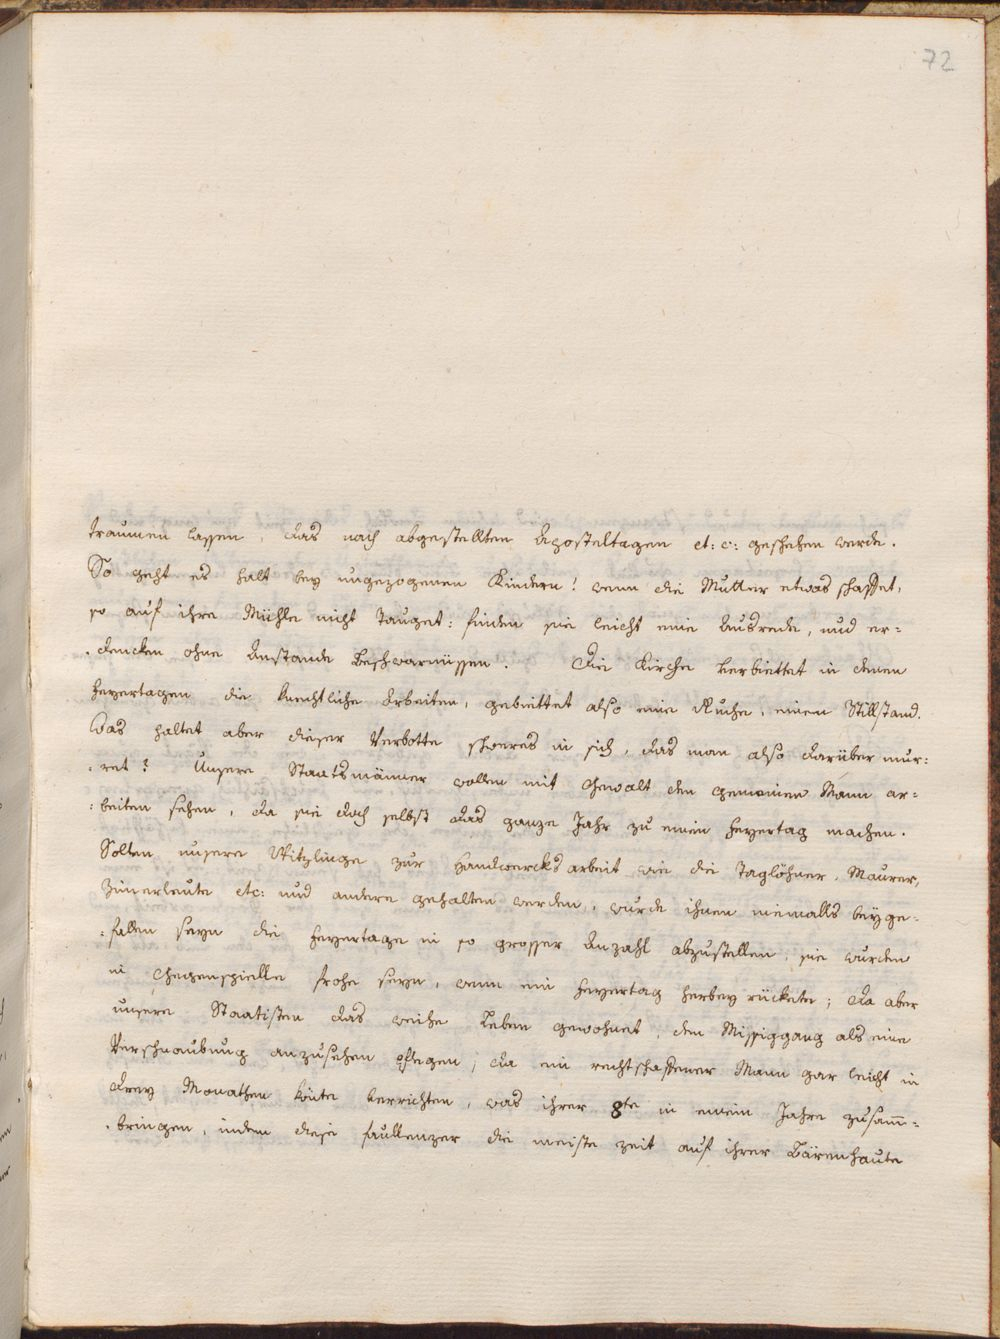 72
traumen lassen, das nach abgestellten Aposteltagen et: c: geschehen werde.
So geht es halt bey ungezogenen Kindern! wenn die Mutter etwas schaffet,
so auf ihre Mühle nicht Tauget: finden sie leicht eine Ausrede, und er=
=dencken ohne Anstande Beschwarnüssen. Die Kirche verbiettet in denen
Feyertagen die knechtliche Arbeiten, gebiettet also eine Ruche, einen Stillstand.
Was haltet aber dieser Verbotte schweres in sich, das man also darüber mur=
=ret? Unsere Staatsmänner wollen mit Gewalt den gemeinen Mann ar=
=beiten sehen, da sie doch selbst das ganze Jahr zu einem Feyertag machen.
Solten unsere Witzlinge zur Handwercks arbeit wie die Taglöhner, Maurer,
Zimerleute etc: und andere gehalten werden, wurde ihnen niemalls beÿge=
=fallen seyn die Feyertage in so grosser Anzahl abzustellen; sie wurden
in Gegenspielle frohe seyn, wenn ein Feyertag herbey rückete; da aber
unsere Staatisten das weiche Leben gewohnet, den Missiggang als eine
Verschnaubung anzusehen pflegen; da ein rechtschaffener Mann gar leicht in
drey Monathen könte verrichten, was ihrer 8te in einem Jahre zusam̅=
=bringen, indem diese faullenzer die meiste zeit auf ihrer Bärenhaute